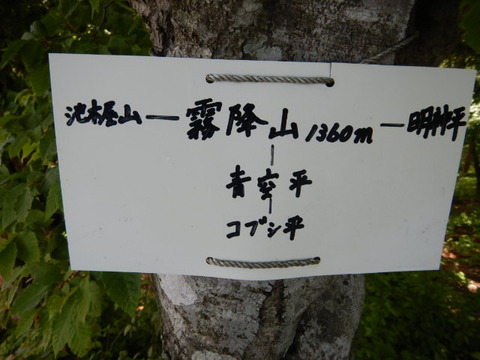 池木屋山―霧降山1360m―明神平
青空平
コブシ平